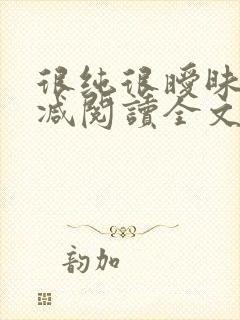 很纯很曖昧
减閱讀全文
韵加